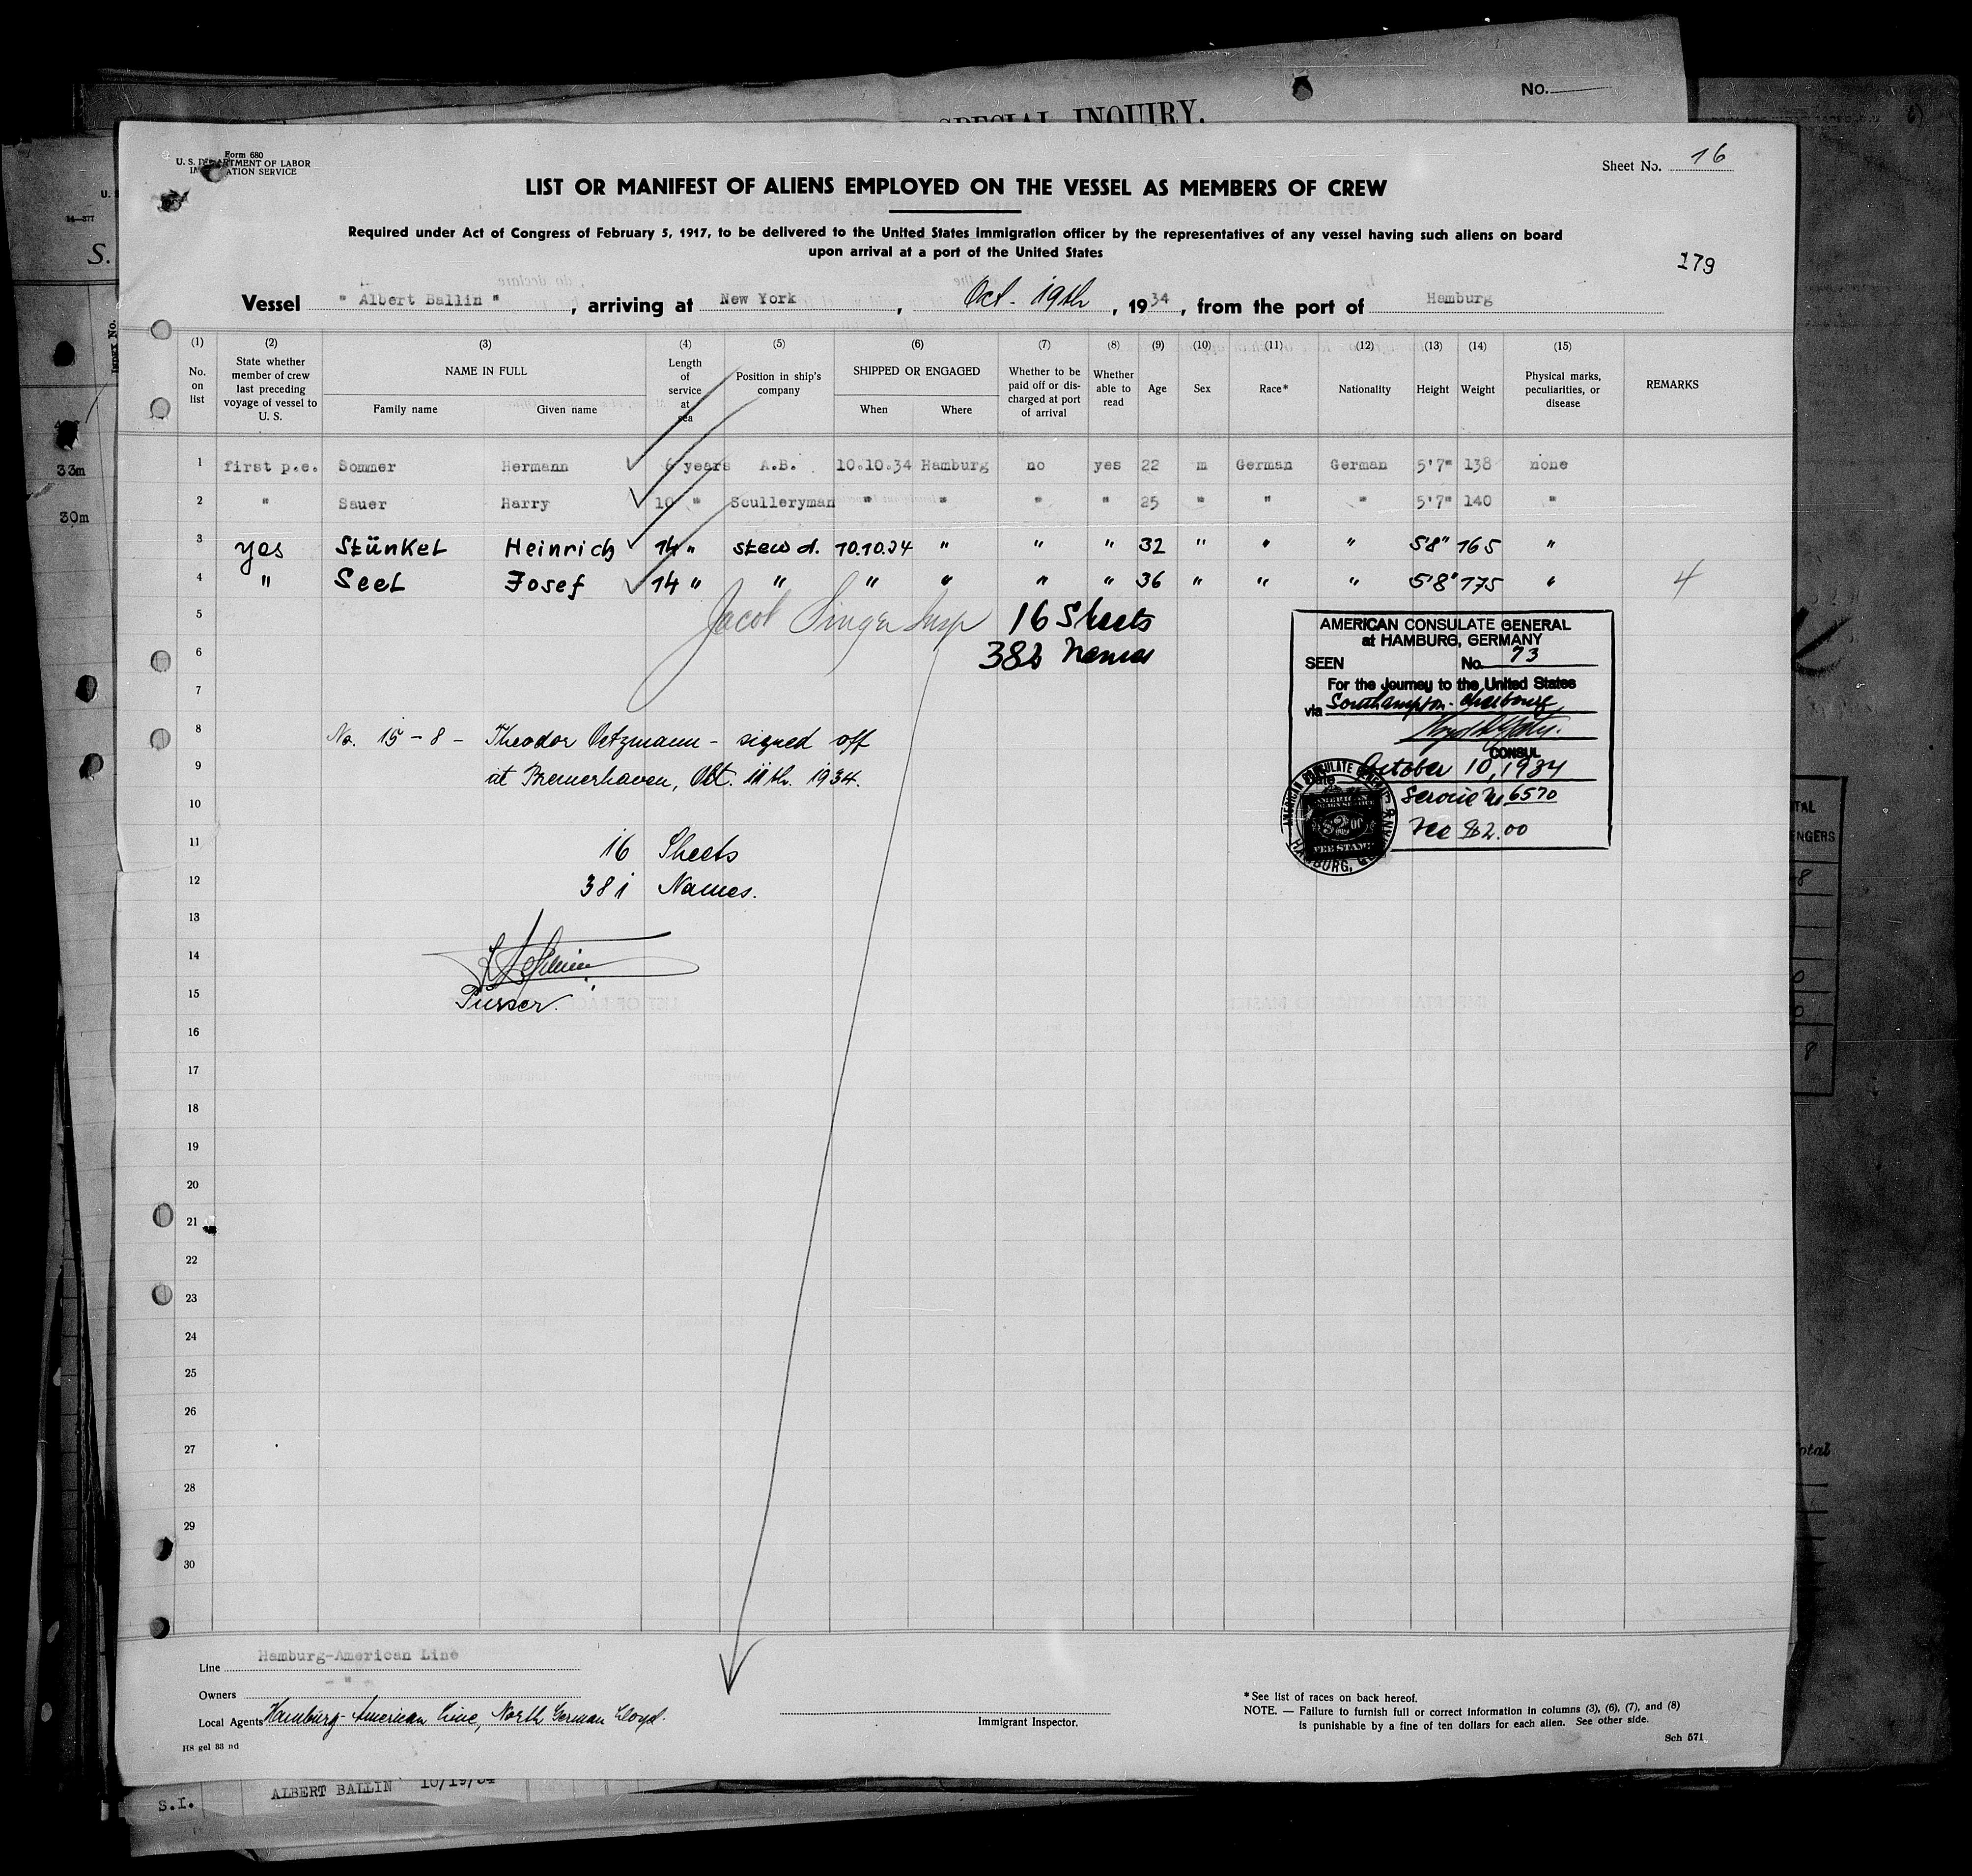 No.
SPECIAL INQUIRY.
Form 680
U. S. DEPARTMENT OF LABOR
IMMIGRATION SERVICE
Sheet No. 16
LIST OR MANIFEST OF ALIENS EMPLOYED ON THE VESSEL AS MEMBERS OF CREW
Required under Act of Congress of February 5, 1917, to be delivered to the United States immigration officer by the representatives of any vessel having such aliens on board
upon arrival at a port of the United States
179
Vessel " Albert Ballin " , arriving at New York , Oct. 19th , 1934 , from the port of Hamburg
(1) (2) (3) (4) (5) (6) (7) (8) (9) (10) (11) (12) (13) (14) (15)
No. on list State whether member of crew last preceding voyage of vessel to U. S. NAME IN FULL Family name Given name Length of service at sea Position in ship's company SHIPPED OR ENGAGED When Where Whether to be paid off or discharged at port of arrival Whether able to read Age Sex Race* Nationality Height Weight Physical marks, peculiarities, or disease REMARKS
1 first p.e. Sommer Hermann 6 years A.B. 10.10.34 Hamburg no yes 22 m German German 5'7" 138 none
2 " Sauer Harry 10 " Sculleryman " " " " 25 " " " 5'7" 140 "
3 yes Stünkel Heinrich 14 " stewd. 10.10.34 " " " 32 " " " 5'8" 165 "
4 " Seel Josef 14 " " " " " " 36 " " " 5'8" 175 " 4
5 Jacob Singer Insp 16 Sheets
6 382 Names
7
8 No. 15-8 - Theodor Oetzmann - signed off
9 at Bremerhaven, Oct. 11th. 1934.
10
11 16 Sheets
12 381 Names.
13
14
15 Purser.
16
17
18
19
20
21
22
23
24
25
26
27
28
29
30
AMERICAN CONSULATE GENERAL
at HAMBURG, GERMANY
SEEN No. 73
For the Journey to the United States
via Southampton - Cherbourg
CONSUL
Date October 10, 1934
Service No 6570
Fee $2.00
Line Hamburg-American Line
Owners "
Local Agents Hamburg-American Line, North German Lloyd.
Immigrant Inspector.
* See list of races on back hereof.
NOTE. — Failure to furnish full or correct information in columns (3), (6), (7), and (8)
is punishable by a fine of ten dollars for each alien. See other side.
HS gel 33 nd
Sch 571
33m
30m
S.I.
ALBERT BALLIN 10/19/34